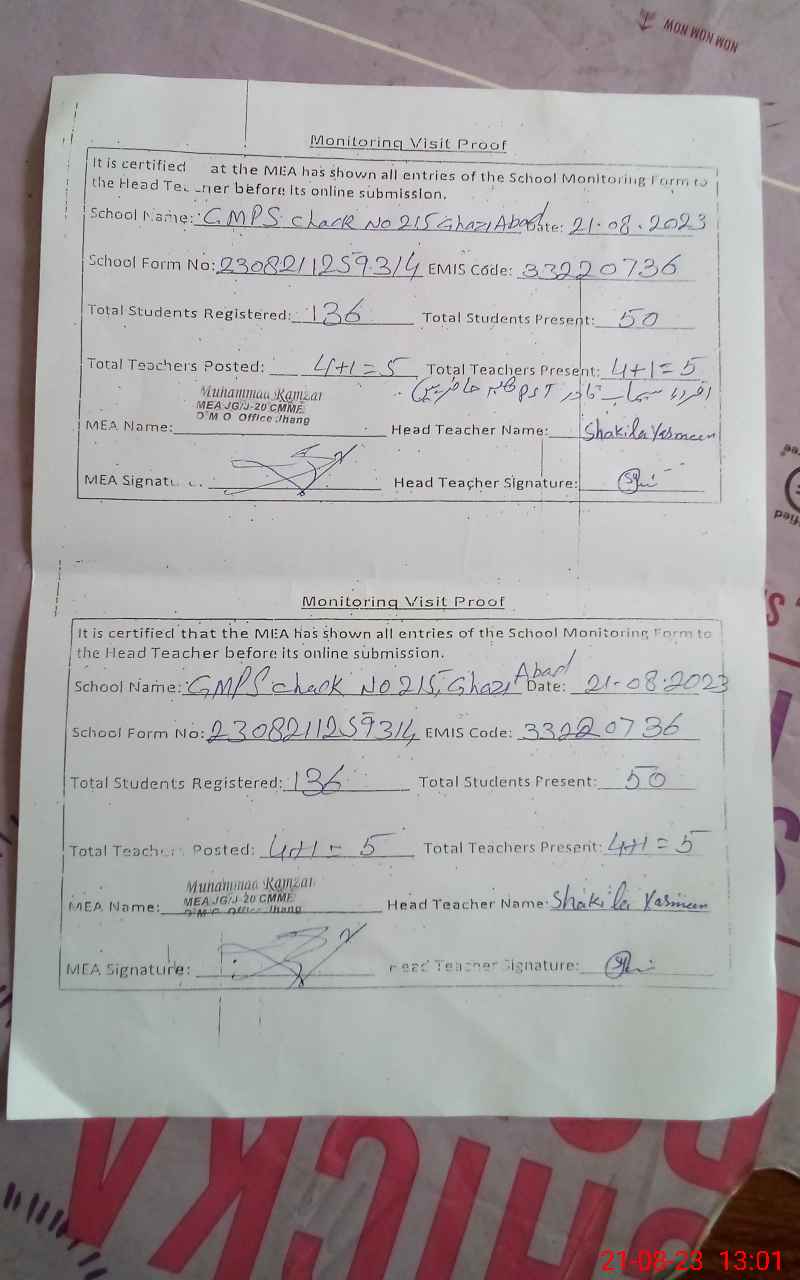 WOW WOW WOW
Monitoring Visit Proof
It is certified at the MEA has shown all entries of the School Monitoring Form to
the Head Te ner before its online submission.
School Name: GMPS Chack No 215, Ghazi Abad Date: 21.08.2023
School Form No: 230821125 9314 EMIS Code: 33220736
Total Students Registered: 136 Total Students Present: 50
Total Teachers Posted: 4+1=5 Total Teachers Present: 4+1=5
PST
Muhammad Ramzan
MEA JG/J-20 CMME
D M O Office Jhang
MEA Name: Head Teacher Name: Shakila Yasmeen
MEA Signatu Head Teacher Signature:
Monitoring Visit Proof
It is certified that the MEA has shown all entries of the School Monitoring Form to
the Head Teacher before its online submission.
School Name: GMPS chack No 215, Ghazi Abad Date: 21-08-2023
School Form No: 2308211259314 EMIS Code: 33220736
Total Students Registered: 136 Total Students Present: 50
Total Teachers Posted: 4+1=5 Total Teachers Present: 4+1=5
Muhammad Ramzan
MEA JG/J-20 CMME
D M O Office Jhang
MEA Name: Head Teacher Name: Shakila Yasmeen
MEA Signature: Head Teacher Signature:
21-08-23 13:01